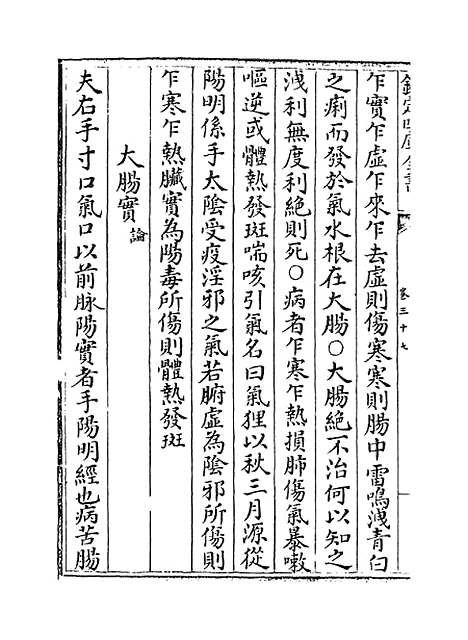 欽定四庫全書
卷三十七
乍實乍虛乍來乍去虛則傷寒寒則腸中雷鳴洩青白
之痢而發於氣水根在大腸○大腸絶不治何以知之
洩利無度利絶則死○病者乍寒乍熱損肺傷氣暴嗽
嘔逆或體熱發斑喘咳引氣名曰氣狸以秋三月源從
陽明係手太陰受疫淫邪之氣若腑虛為陰邪所傷則
乍寒乍熱臟實為陽毒所傷則體熱發斑
大腸實論
夫右手寸口氣口以前脉陽實者手陽明經也病苦腸